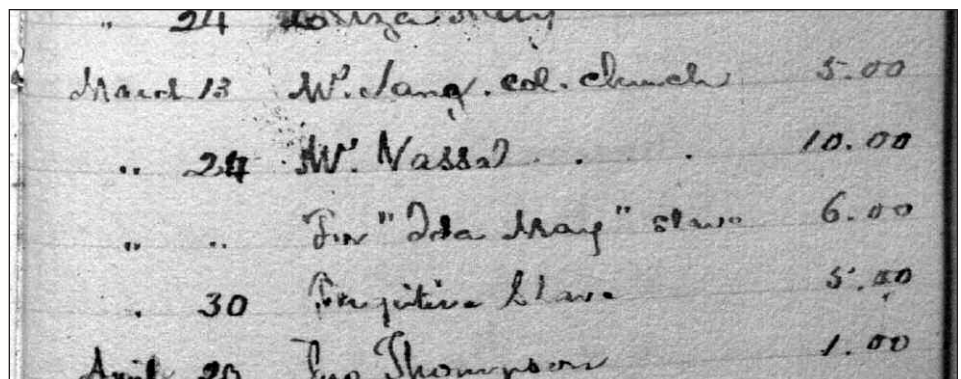 " 24 Eliza May
March 13 Mr. Lang. col. church 5.00
" 24 Mr. Vassal . . . 10.00
" " For "Ida May" slave 6.00
" 30 Fugitive Slave 5.00
April 20 Jno Thompson 1.00